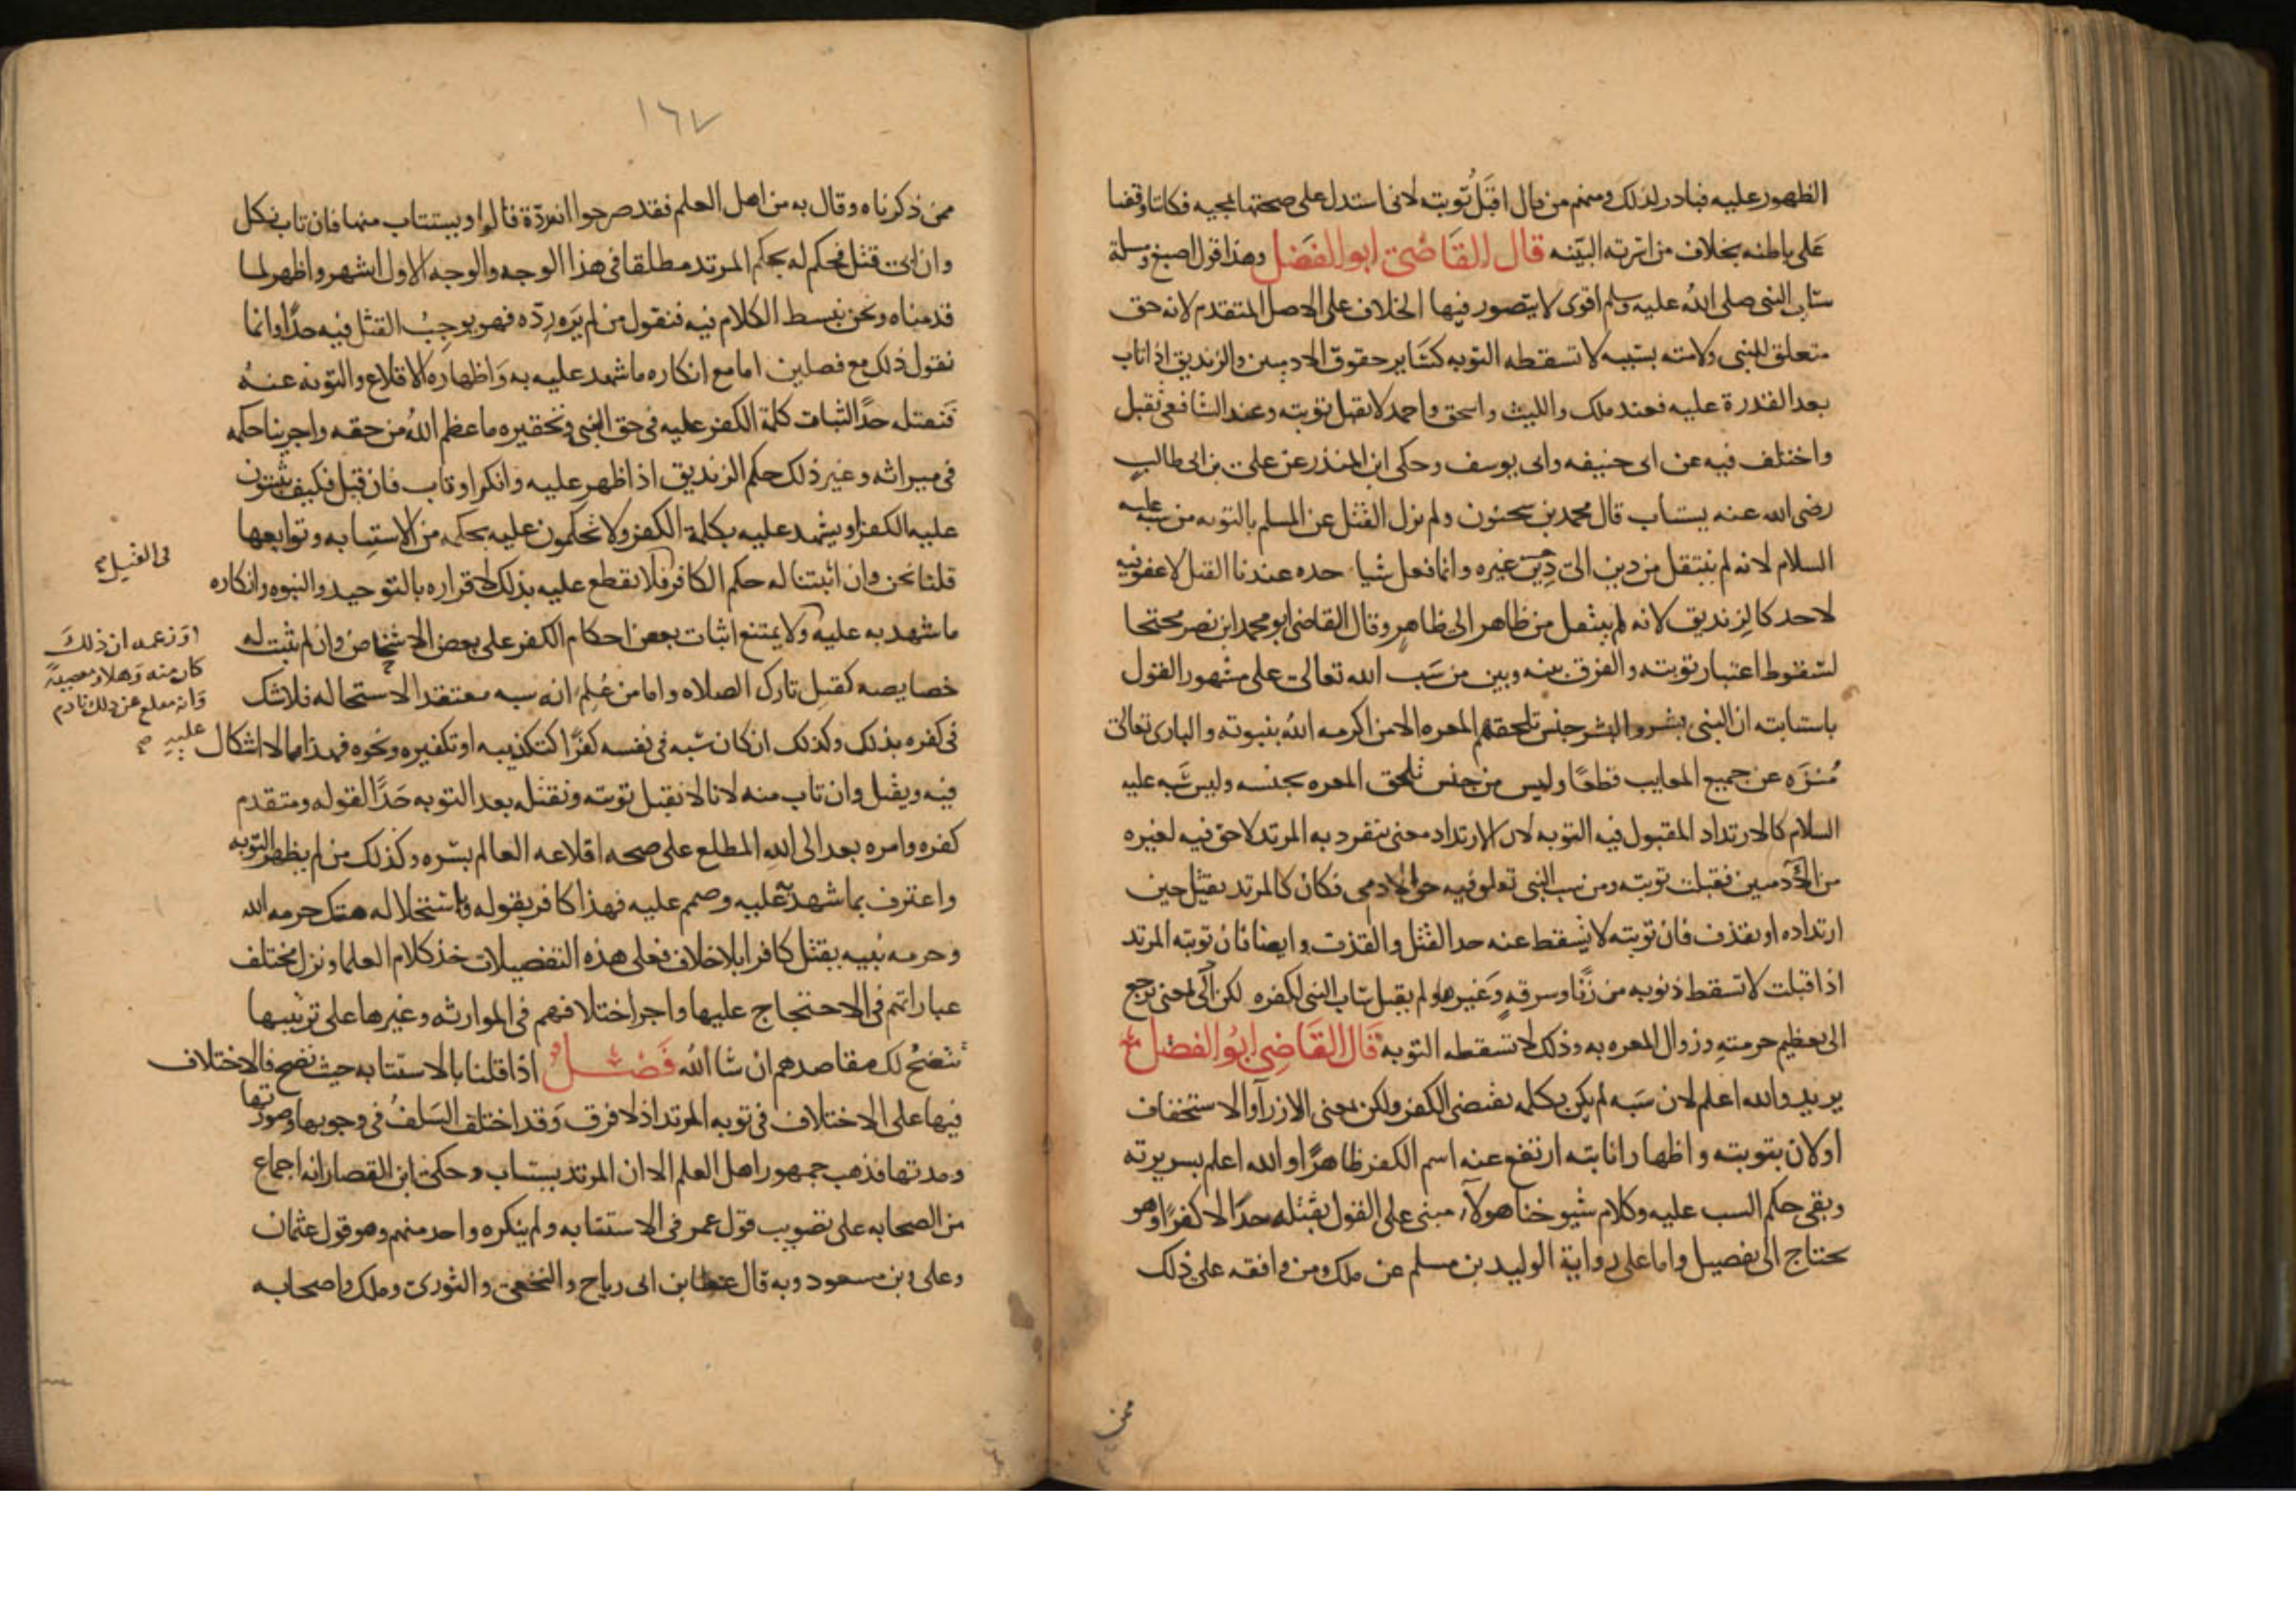 الظهور عليه فبادر لذلك ومنهم من قال اقبل توبته لاني استدل على صحتها بمجيه فكاننا وقفنا
على باطنه بخلاف من اسرته البينه قال القاضى ابو الفضل وهذا قول اصبغ ومسلة
ساب النبى صلى الله عليه وسلم اقوى لا يتصور فيها الخلاف على الاصل المتقدم لانه حق
متعلق للنبى ولامته بسببه لا تسقطه التوبه كسَاير حقوق الادميين والزنديق اذا تاب
بعد القدرة عليه فعند ملك والليث واسحق واحمد لا تقبل توبته وعند الشافعى تقبل
واختلف فيه عن ابى حنيفه وابى يوسف وحكى ابن المنذر عن على بن ابى طالب
رضى الله عنه يستتاب قال محمد بن سحنون ولم يزل القتل عن المسلم بالتوبه من سبه عليه
السلام لانه لم ينتقل من دين الى دين غيره وانما فعل شيا حده عندنا القتل لا عفو فيه
لاحد كالزنديق لانه لم ينتقل من ظاهر الى ظاهر وقال القاضى ابو محمد ابن نصر محتجا
لسقوط اعتبار توبته والفرق بينه وبين من سَب الله تعالى على مشهور القول
باستتابته ان النبى بشر والبشر جنس تلحقهم المعره الا من اكرمه الله بنبوته والبارى تعالى
مُنزه عن جميع المعايب قطعًا وليس من جنس تلحق المعره بجنسه وليس سَبه عليه
السلام كالارتداد المقبول فيه التوبه لان الارتداد معنى ينفرد به المرتد لا حق فيه لغيره
من الآدميين فقبلت توبته ومن سب النبى تعلق فيه حق لادمى فكان كالمرتد يقتل حين
ارتداده او يقذف فان توبته لا يسقط عنه حد القتل والقذف وايضا فان توبته المرتد
اذا قبلت لا تسقط ذنوبه من زنا وسرقه وَغيرها ولم يقبل ساب النبى لكفره لكن لمعنى يرجع
الى تعظيم حرمته وزوال المعره به وذلك لا تسقطه التوبه قال القَاضِى ابُو الفضل
يريد والله اعلم لان سَبه لم يكن بكلمه تقتضى الكفر ولكن بمعنى الازرآ والاستخفاف
او لان بتوبته واظهار انابته ارتفع عنه اسم الكفر ظاهرًا والله اعلم بسريرته
وبقى حكم السب عليه وكلام شيوخنا هولآء مبنى على القول بقتله حدًا لا كفرًا وهو
يحتاج الى تفصيل واما على رواية الوليد بن مسلم عن ملك ومن وافقه على ذلك
ممن
١٦٧
ممن ذكرناه وقال به من اهل العلم فقد صرحوا انه ردّة قالوا ويستتاب منها فان تاب نكل
وان ابى قتل فحكم له بحكم المرتد مطلقا فى هذا الوجه والوجه الاول اشهر واظهر لما
قدمناه ونحن نبسط الكلام فيه فنقول من لم يَره رِدّه فهو يوجب القتل فيه حدًّا وانما
نقول ذلك مع فصلين اما مع انكاره ما شهد عليه به وَاظهاره الاقلاع والتوبه عنه
فنقتله حدًّا لثبات كلمة الكفر عليه فى حق النبى وتحقيره ما عظم الله من حقه واجرينا حكمه
فى ميراثه وغير ذلك حكم الزنديق اذا ظهر عليه وانكر او تاب فان قيل فكيف تثبتون
عليه الكفر او يشهد عليه بكلمة الكفر ولا تحكمون عليه بحكمه من الاستتابه وتوابعها
قلنا نحن وان اثبتنا له حكم الكافر فلا نقطع عليه بذلك لاقراره بالتوحيد والنبوه وانكاره
فى القتل صح
ما شهد به عليه ولا يمتنع اثبات بعض احكام الكفر على بعض الاشخاص وان لم تثبت له
او زعمه ان ذلك
كان منه وَهلا ومعصيةً
وَانه مقلع عن ذلك نادم
عليه صح
خصايصه كقتل تارك الصلاه واما من عُلم انه سبه معتقدا لاستحاله فلا شك
فى كفره بذلك وكذلك ان كان سَبه فى نفسه كفرًا كتكذيبه او تكفيره ونحوه فهذا مما لا اشكال
فيه ويقتل وان تاب منه لانا لا نقبل توبته ونقتله بعد التوبه حَدًّا لقوله ومتقدم
كفره وامره بعد الى الله المطلع على صحه اقلاعه العالم بسره وكذلك من لم يظهر التوبه
واعترف بما شهد به عليه وصمم عليه فهذا كافر بقوله واستحلاله هتك حرمه الله
وحرمه نبيه يقتل كافرا بلا خلاف فعلى هذه التفصيلات خذ كلام العلما ونزل مختلف
عباراتهم فى الاحتجاج عليها واجر اختلافهم فى الموارثه وغيرها على ترتيبها
تتضح لك مقاصدهم ان شا الله فَصْل اذا قلنا بالاستتابه حيث تصح فالاختلاف
فيها على الاختلاف فى توبه المرتد اذ لا فرق وَقد اختلف السَلفُ فى وجوبها وصورتها
ومدتها فذهب جمهور اهل العلم الا ان المرتد يستتاب وحكى ابن القصار انه اجماع
من الصحابه على تصويب قول عمر فى الاستتابه ولم ينكره واحد منهم وهو قول عثمان
وعلى وبن مسعود وبه قال عطا بن ابى رباح والنخعى والثورى وملك واصحابه